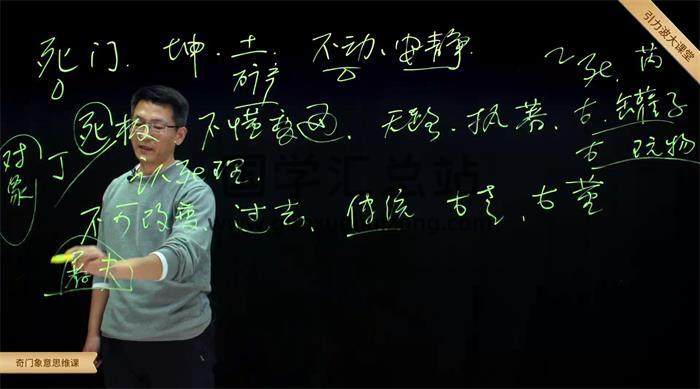 引力波大课堂
死门. 坤. 土. 不动、安静.
矿产
乙 死. 芮
死板 不懂变通. 无路. 执着. 古 罐子
古 玩物
对象 丁
认死理.
不可改变 过去、传统 古老、古董
国学汇总站
寡夫
奇门象意思维课